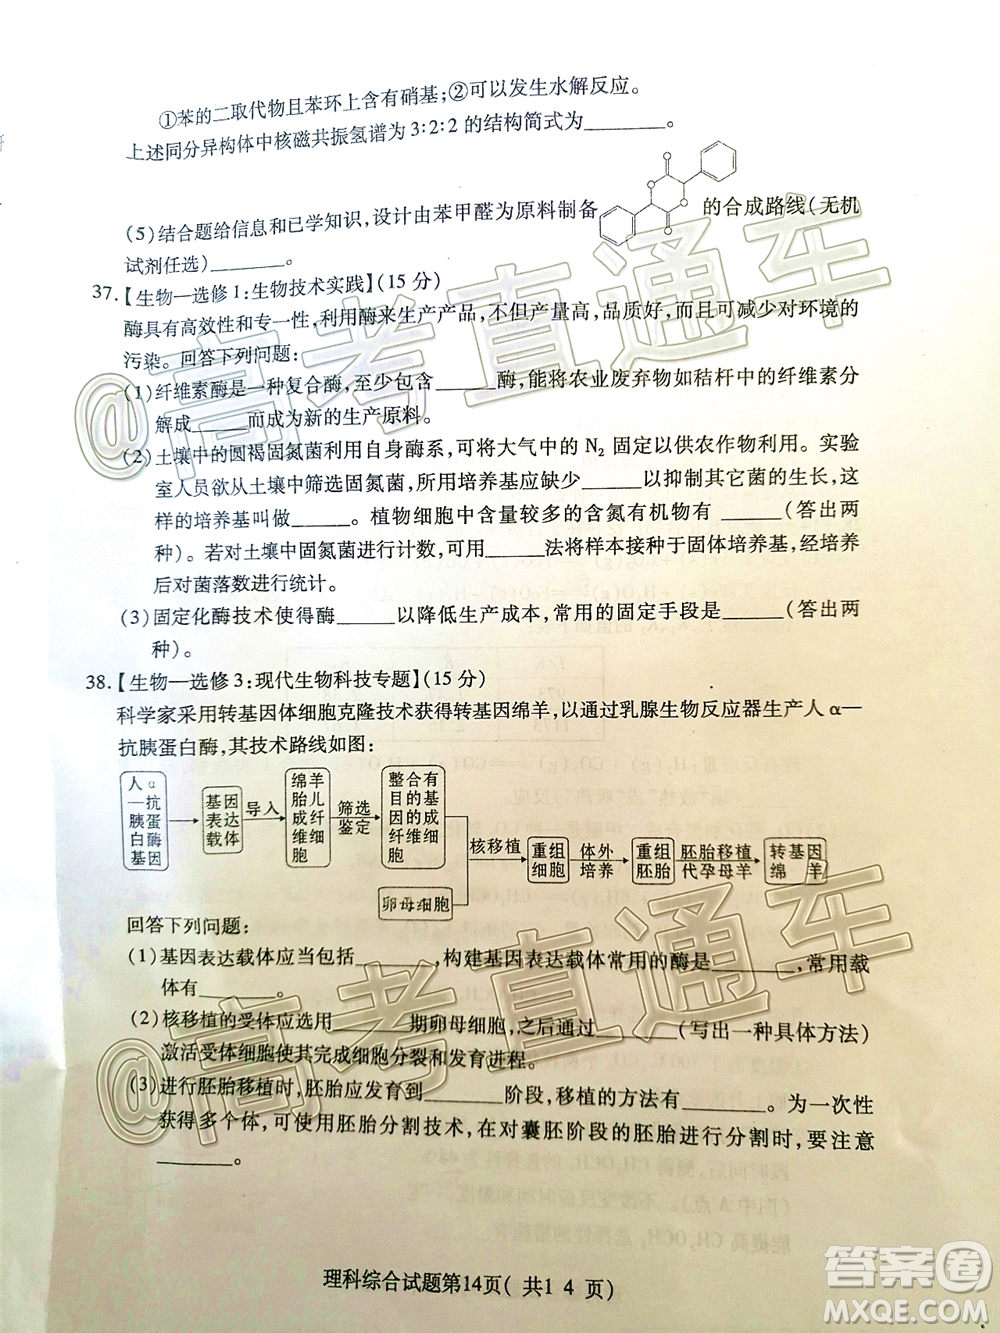 ①苯的二取代物且苯环上含有硝基;②可以发生水解反应。
上述同分异构体中核磁共振氢谱为 3:2:2 的结构简式为______。
(5)结合题给信息和已学知识,设计由苯甲醛为原料制备 的合成路线(无机
试剂任选)______。
37.【生物—选修1:生物技术实践】(15 分)
酶具有高效性和专一性,利用酶来生产产品,不但产量高,品质好,而且可减少对环境的
污染。回答下列问题:
(1)纤维素酶是一种复合酶,至少包含______酶,能将农业废弃物如秸秆中的纤维素分
解成______而成为新的生产原料。
(2)土壤中的圆褐固氮菌利用自身酶系,可将大气中的 N₂ 固定以供农作物利用。实验
室人员欲从土壤中筛选固氮菌,所用培养基应缺少______以抑制其它菌的生长,这
样的培养基叫做______。植物细胞中含量较多的含氮有机物有______(答出两
种)。若对土壤中固氮菌进行计数,可用______法将样本接种于固体培养基,经培养
后对菌落数进行统计。
(3)固定化酶技术使得酶______以降低生产成本,常用的固定手段是______(答出两
种)。
38.【生物—选修3:现代生物科技专题】(15 分)
科学家采用转基因体细胞克隆技术获得转基因绵羊,以通过乳腺生物反应器生产人 α—
抗胰蛋白酶,其技术路线如图:
人 α
—抗
胰蛋
白酶
基因
基因
表达
载体
导入
绵羊
胎儿
成纤
维细
胞
筛选
鉴定
整合有
目的基
因的成
纤维细
胞
卵母细胞
核移植
重组
细胞
体外
培养
重组
胚胎
胚胎移植
代孕母羊
转基因
绵 羊
回答下列问题:
(1)基因表达载体应当包括______,构建基因表达载体常用的酶是______,常用载
体有______。
(2)核移植的受体应选用______期卵母细胞,之后通过______(写出一种具体方法)
激活受体细胞使其完成细胞分裂和发育进程。
(3)进行胚胎移植时,胚胎应发育到______阶段,移植的方法有______。为一次性
获得多个体,可使用胚胎分割技术,在对囊胚阶段的胚胎进行分割时,要注意
______。
理科综合试题第14页( 共1 4 页)
@高考直通车
@高考直通车
答案圈
MXQE.COM